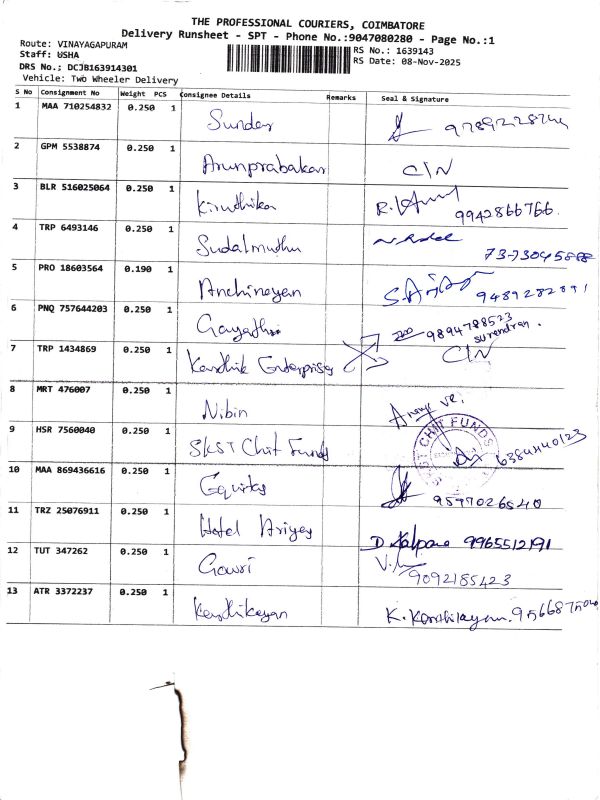 THE PROFESSIONAL COURIERS, COIMBATORE
Delivery Runsheet - SPT - Phone No.:9047080280 - Page No.:1
Route: VINAYAGAPURAM
Staff: USHA
RS No.: 1639143
DRS No.; DCJB163914301
RS Date: 08-Nov-2025
Vehicle: Two Wheeler Delivery
S No Consignment No Weight PCS Consignee Details Remarks Seal & Signature
1 MAA 710254832 0.250 1 Sundar
2 GPM 5538874 0.250 1 Arunprabakar C/N
3 BLR 516025064 0.250 1 Kiruthika 9942866766
4 TRP 6493146 0.250 1 Sudalmuthu
5 PRO 18603564 0.190 1 Anchinayan 9489282891
6 PNQ 757644203 0.250 1 Gayathri 9894788523
surendran.
7 TRP 1434869 0.250 1 Karthik Enterprises C/N
8 MRT 476007 0.250 1 Nibin
9 HSR 7560040 0.250 1 SKST Chit Funds SKST CHIT FUNDS 6384440123
10 MAA 869436616 0.250 1 Equitas 9597026540
11 TRZ 25076911 0.250 1 Hotel Ariyas D. Kalpana 9965512191
12 TUT 347262 0.250 1 Gowri 9092185423
13 ATR 3372237 0.250 1 Karthikeyan K. Karthikeyan.